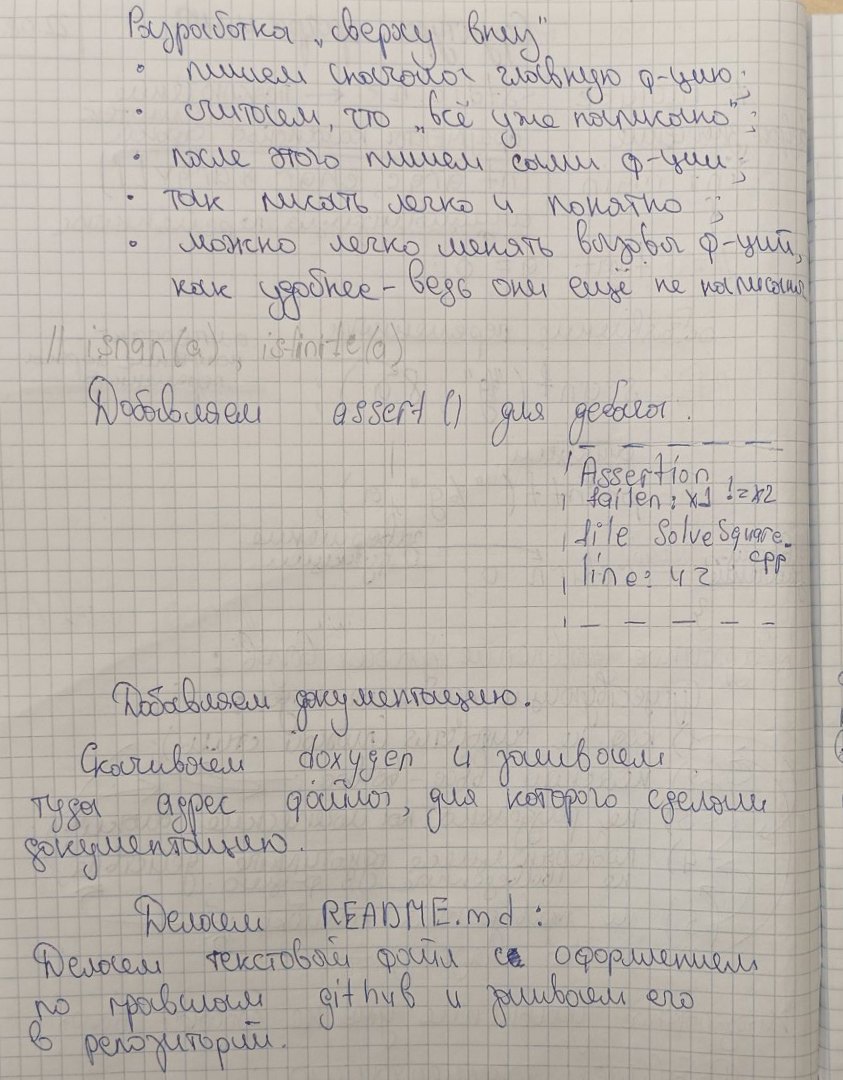 Разработка „сверху вниз"
• пишем сначала главную ф-цию;
• считаем, что „всё уже написано";
• после этого пишем сами ф-ции;
• так писать легко и понятно;
• можно легко менять вызовы ф-ций,
как удобнее - ведь они ещё не написаны
// isnan(a), isfinite(a)
Добавляем assert() для дебага.
Assertion
failen: x1 != x2
file SolveSquare.
cpp
line: 42
Добавляем документацию.
Скачиваем doxygen и заливаем
туда адрес файла, для которого сделали
документацию.
Делаем README.md:
Делаем текстовый файл с оформлением
по правилам github и заливаем его
в репозиторий.